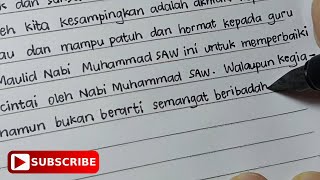 eh kita kesampingkan adalah akhlak
au dan mampu patuh dan hormat kepada guru
Maulid Nabi Muhammad SAW ini untuk memperbaiki
cintai oleh Nabi Muhammad SAW. Walaupun kegia-
namun bukan berarti semangat beribadah
SUBSCRIBE